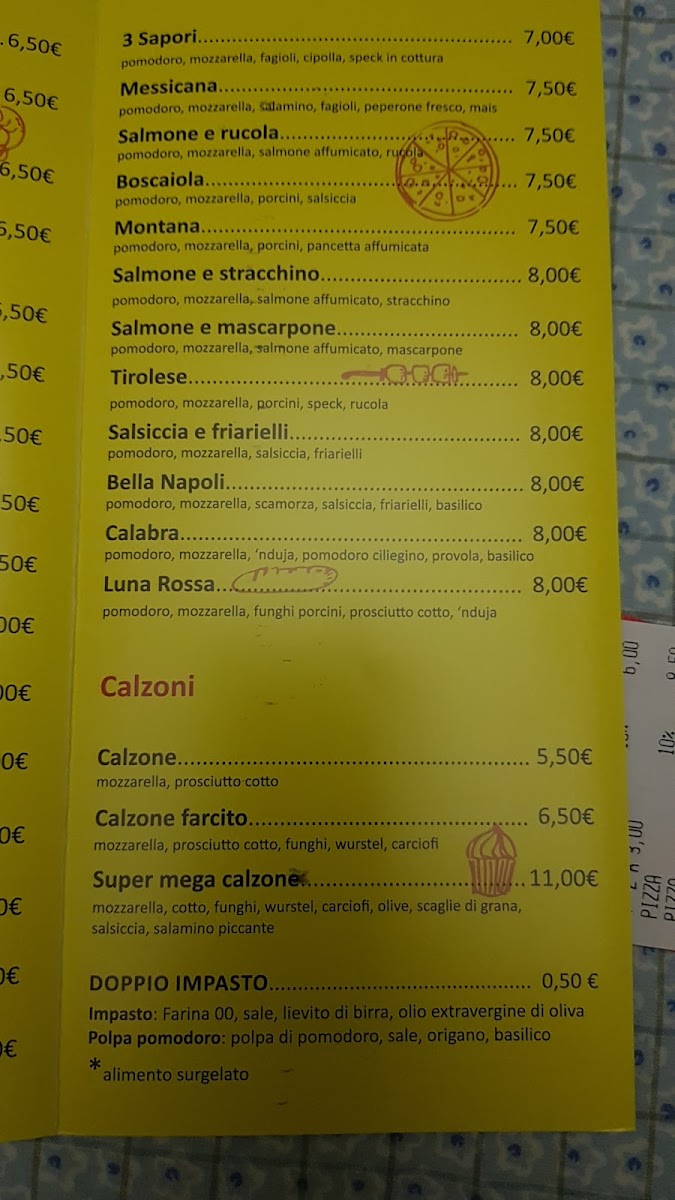 . 6,50€
6,50€
6,50€
5,50€
,50€
,50€
,50€
50€
50€
00€
00€
0€
0€
0€
0€
€
3 Sapori.......... 7,00€
pomodoro, mozzarella, fagioli, cipolla, speck in cottura
Messicana.......... 7,50€
pomodoro, mozzarella, salamino, fagioli, peperone fresco, mais
Salmone e rucola.......... 7,50€
pomodoro, mozzarella, salmone affumicato, rucola
Boscaiola.......... 7,50€
pomodoro, mozzarella, porcini, salsiccia
Montana.......... 7,50€
pomodoro, mozzarella, porcini, pancetta affumicata
Salmone e stracchino.......... 8,00€
pomodoro, mozzarella, salmone affumicato, stracchino
Salmone e mascarpone.......... 8,00€
pomodoro, mozzarella, salmone affumicato, mascarpone
Tirolese.......... 8,00€
pomodoro, mozzarella, porcini, speck, rucola
Salsiccia e friarielli.......... 8,00€
pomodoro, mozzarella, salsiccia, friarielli
Bella Napoli.......... 8,00€
pomodoro, mozzarella, scamorza, salsiccia, friarielli, basilico
Calabra.......... 8,00€
pomodoro, mozzarella, ‘nduja, pomodoro ciliegino, provola, basilico
Luna Rossa.......... 8,00€
pomodoro, mozzarella, funghi porcini, prosciutto cotto, ‘nduja
Calzoni
Calzone.......... 5,50€
mozzarella, prosciutto cotto
Calzone farcito.......... 6,50€
mozzarella, prosciutto cotto, funghi, wurstel, carciofi
Super mega calzone.......... 11,00€
mozzarella, cotto, funghi, wurstel, carciofi, olive, scaglie di grana,
salsiccia, salamino piccante
DOPPIO IMPASTO.......... 0,50 €
Impasto: Farina 00, sale, lievito di birra, olio extravergine di oliva
Polpa pomodoro: polpa di pomodoro, sale, origano, basilico
*alimento surgelato
6,00
10%
3,00
PIZZA